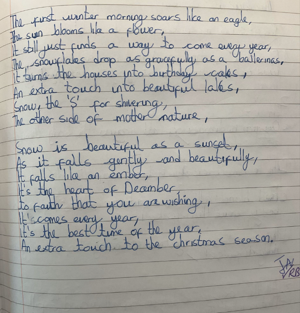 The first winter morning soars like an eagle,
The sun blooms like a flower,
It still just finds a way to come every year,
The snowflakes drop as gracefully as a ballerinas,
It turns the houses into birthday cakes,
An extra touch into beautiful lakes,
Snow, the 'S' for shivering,
The other side of mother nature,
Snow is beautiful as a sunset,
As it falls gently and beautifully,
It falls like an ember,
It's the heart of December,
to faith that you are wishing,
It comes every year,
It's the best time of the year,
An extra touch to the christmas season.